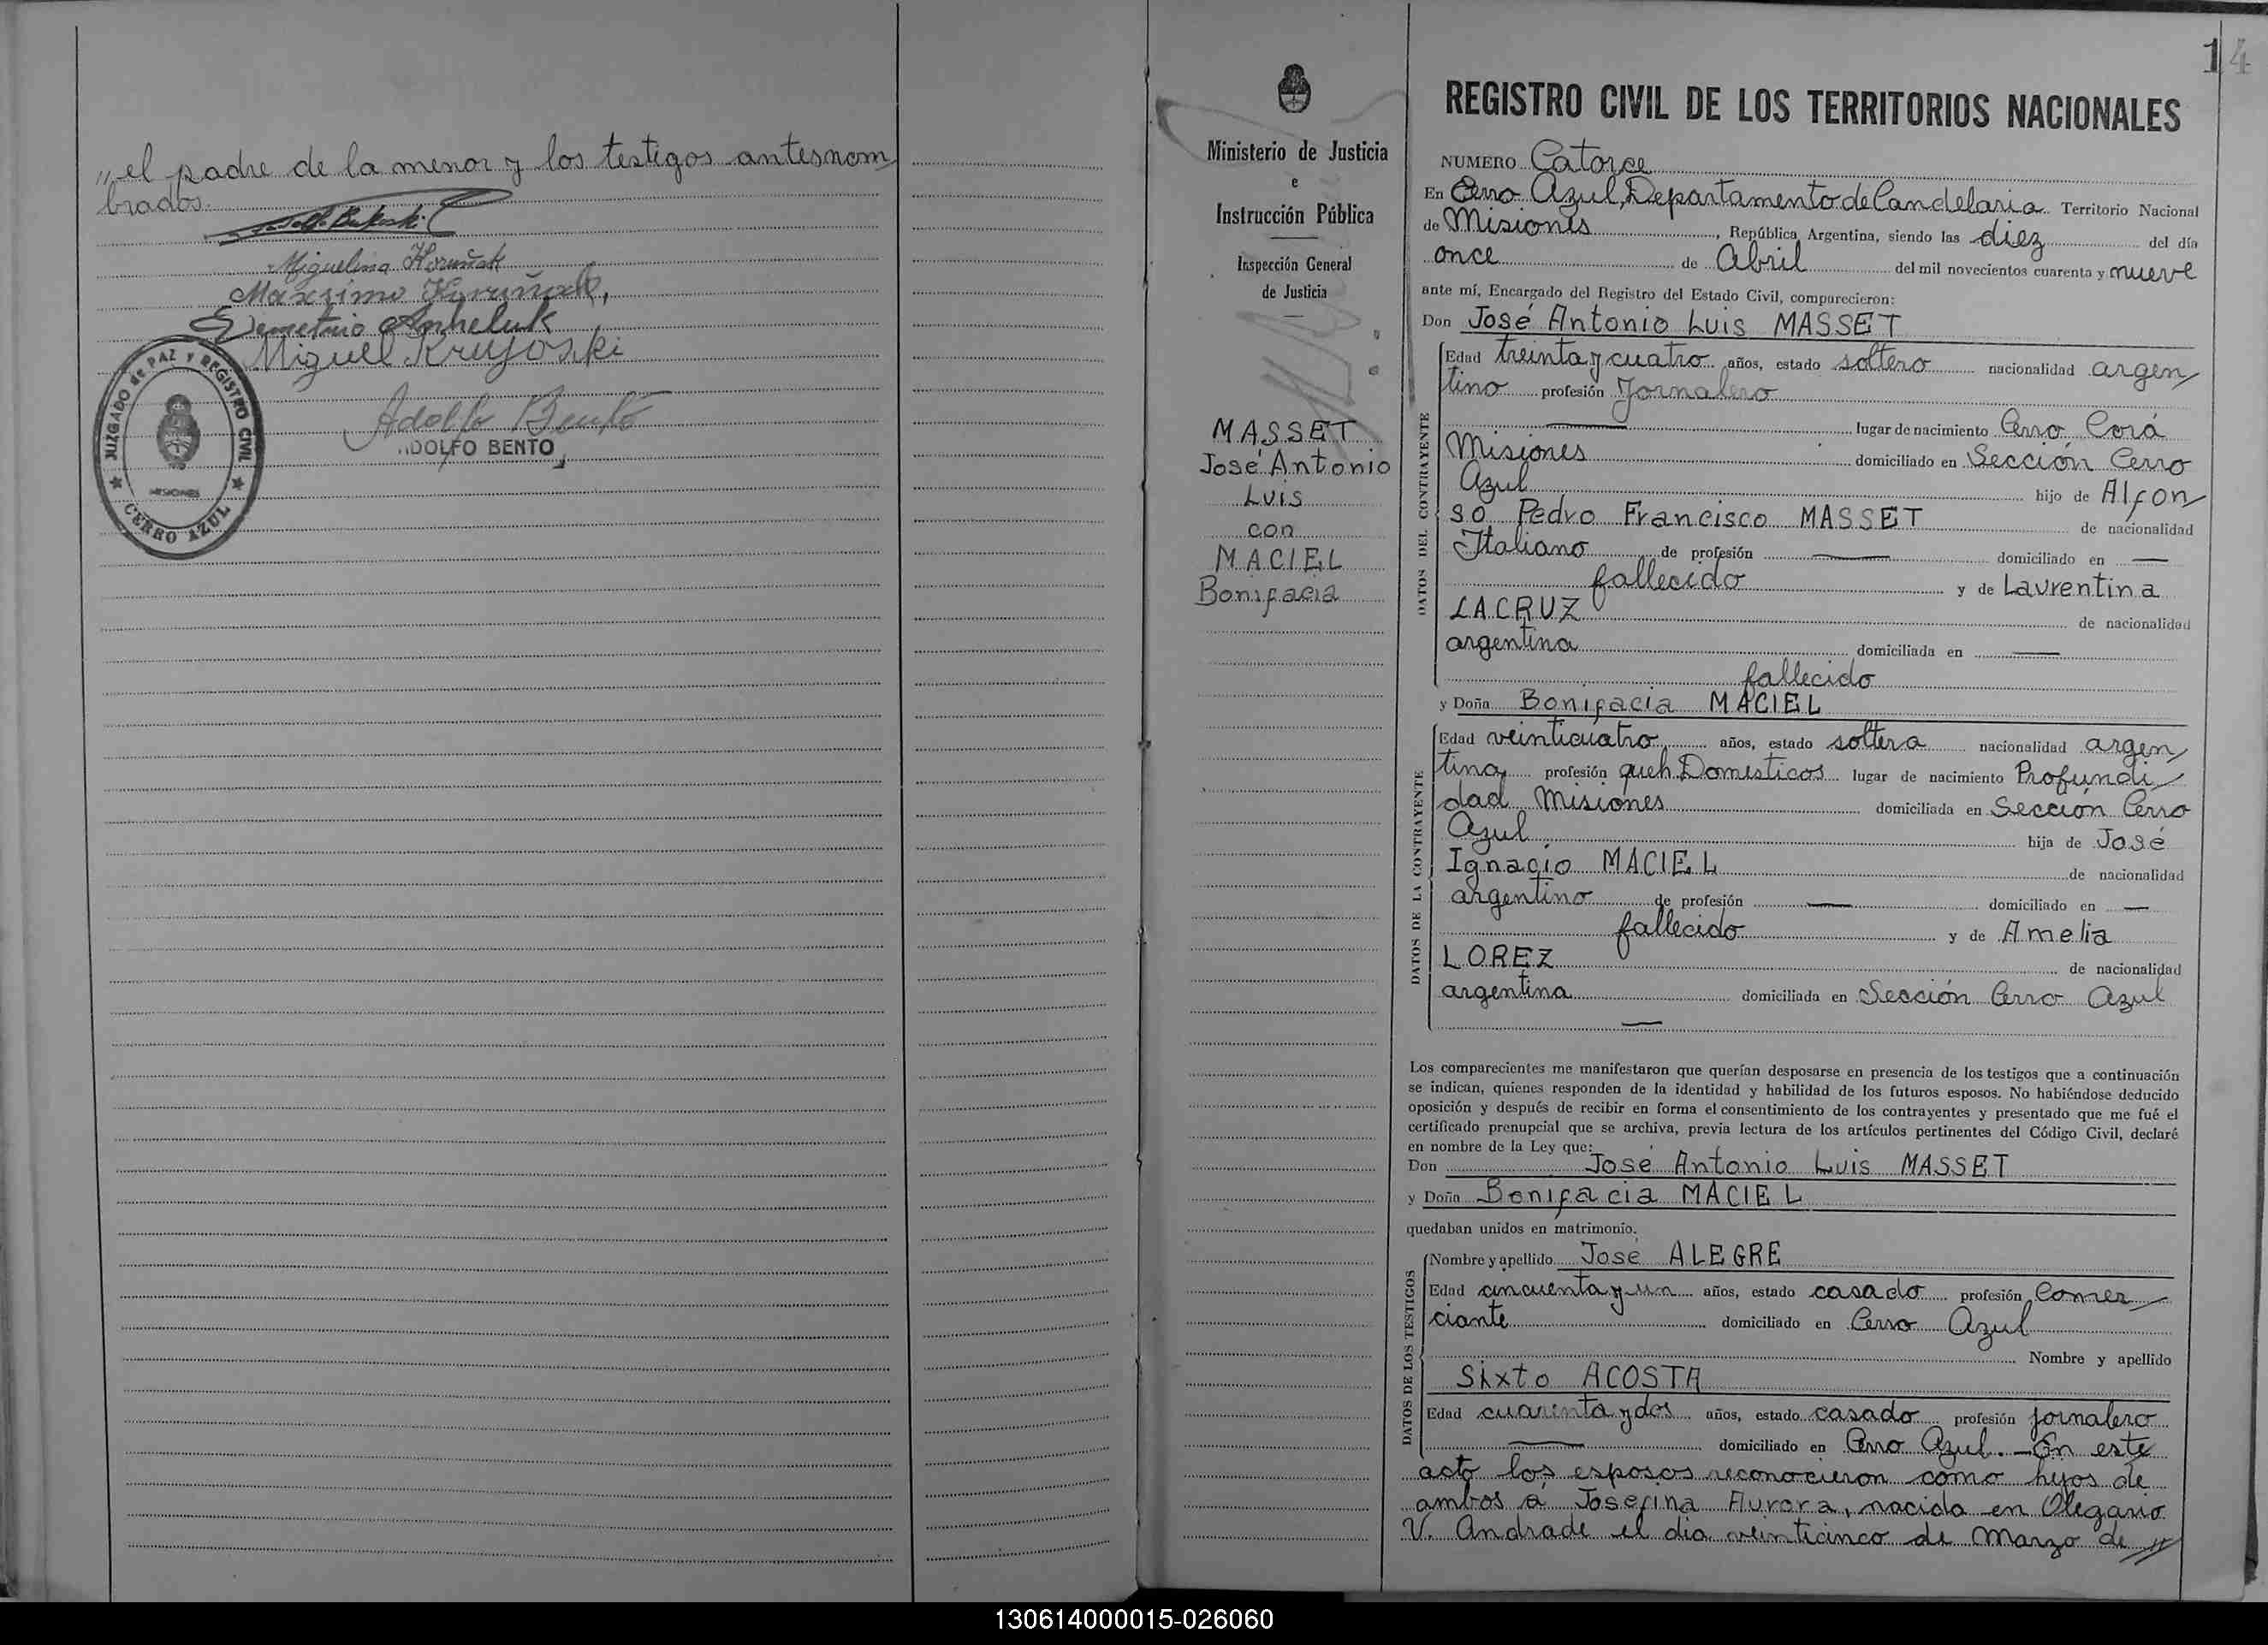 „el padre de la menor y los testigos antesnom
brados.
Miguelina Koruñak
Maxsimo Koruñak,
Demetrio Anheluk
Miguel Krujoski
Adolfo Bento
ADOLFO BENTO
JUZGADO de PAZ Y REGISTRO CIVIL
MISIONES
CERRO AZUL
14
Ministerio de Justicia
e
Instrucción Pública
Inspección General
de Justicia
MASSET
José Antonio
Luis
con
MACIEL
Bonifacia
REGISTRO CIVIL DE LOS TERRITORIOS NACIONALES
NUMERO Catorce
En Cerro Azul, Departamento de Candelaria Territorio Nacional
de Misiones, República Argentina, siendo las diez del día
once de Abril del mil novecientos cuarenta y nueve
ante mí, Encargado del Registro del Estado Civil, comparecieron:
Don José Antonio Luis MASSET
DATOS DEL CONTRAYENTE
Edad treinta y cuatro años, estado soltero nacionalidad argen
tino profesión Jornalero
lugar de nacimiento Cerro Corá
Misiones domiciliado en Sección Cerro
Azul hijo de Alfon
so Pedro Francisco MASSET de nacionalidad
Italiano de profesión — domiciliado en —
fallecido y de Laurentina
LACRUZ de nacionalidad
argentina domiciliada en —
fallecido
y Doña Bonifacia MACIEL
DATOS DE LA CONTRAYENTE
Edad veinticuatro años, estado soltera nacionalidad argen
tina profesión queh. Domesticos lugar de nacimiento Profundi
dad Misiones domiciliada en Sección Cerro
Azul hija de José
Ignacio MACIEL de nacionalidad
argentino de profesión — domiciliado en —
fallecido y de Amelia
LOREZ de nacionalidad
argentina domiciliada en Sección Cerro Azul
Los comparecientes me manifestaron que querían desposarse en presencia de los testigos que a continuación
se indican, quienes responden de la identidad y habilidad de los futuros esposos. No habiéndose deducido
oposición y después de recibir en forma el consentimiento de los contrayentes y presentado que me fué el
certificado prenupcial que se archiva, previa lectura de los artículos pertinentes del Código Civil, declaré
en nombre de la Ley que:
Don José Antonio Luis MASSET
y Doña Bonifacia MACIEL
quedaban unidos en matrimonio.
DATOS DE LOS TESTIGOS
Nombre y apellido José ALEGRE
Edad cincuenta y un años, estado casado profesión Comer
ciante domiciliado en Cerro Azul
Nombre y apellido
Sixto ACOSTA
Edad cuarenta y dos años, estado casado profesión jornalero
domiciliado en Cerro Azul. — En este
acto los esposos reconocieron como hijos de
ambos á Josefina Aurora, nacida en Olegario
V. Andrade el dia veinticinco de Marzo de „
130614000015-026060